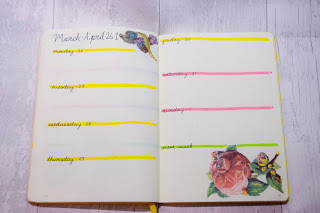 March-April 26-1
monday - 26
tuesday - 27
wednesday - 28
thursday - 29
friday - 30
saturday - 31
sunday - 1
next week